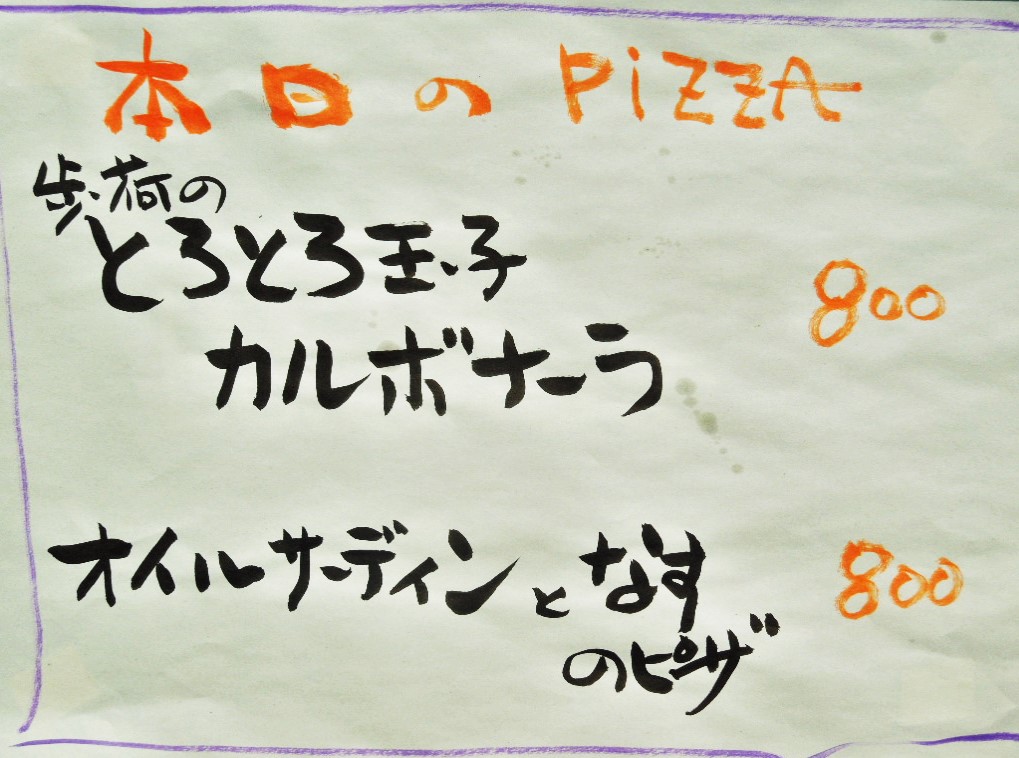 本日のPiZZA
歩荷の
とろとろ玉子
800
カルボナーラ
オイルサーディンとなす
800
のピザ